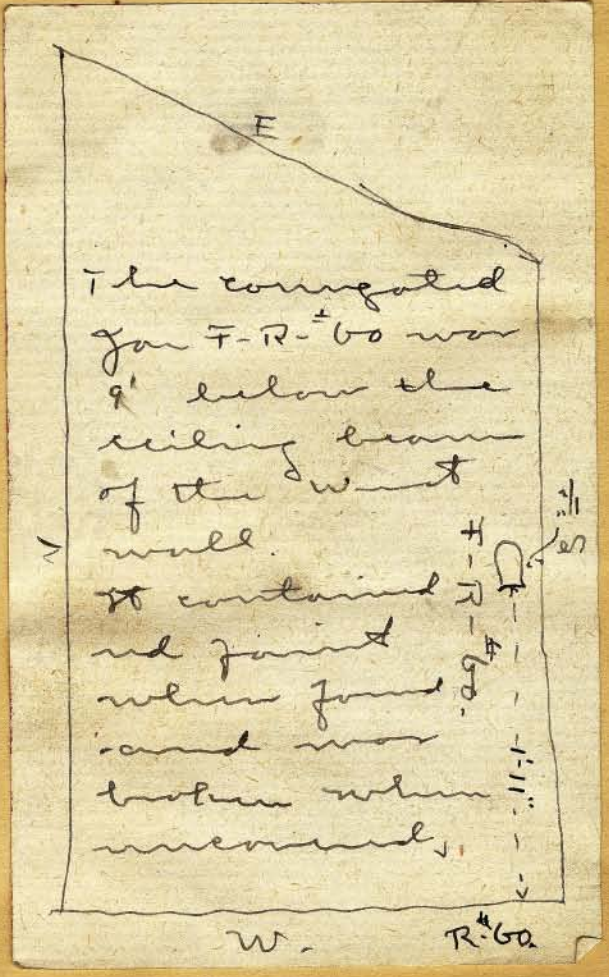 E
The corrugated
jar F-R-#60 was
9' below the
ceiling beam
of the West
wall.
It contained
red paint
when found
and was
broken when
uncovered.
F-R-#60.
1'-11"
W.
R-#60.